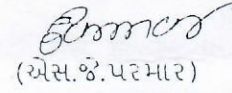 (એસ.જે.પરમાર)